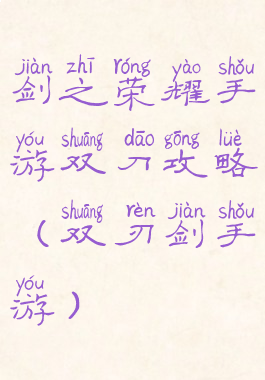 jiàn zhī róng yào shǒu
剑之荣耀手
yóu shuāng dāo gōng lüè
游双刀攻略
shuāng rèn jiàn shǒu
（双刃剑手
yóu
游）